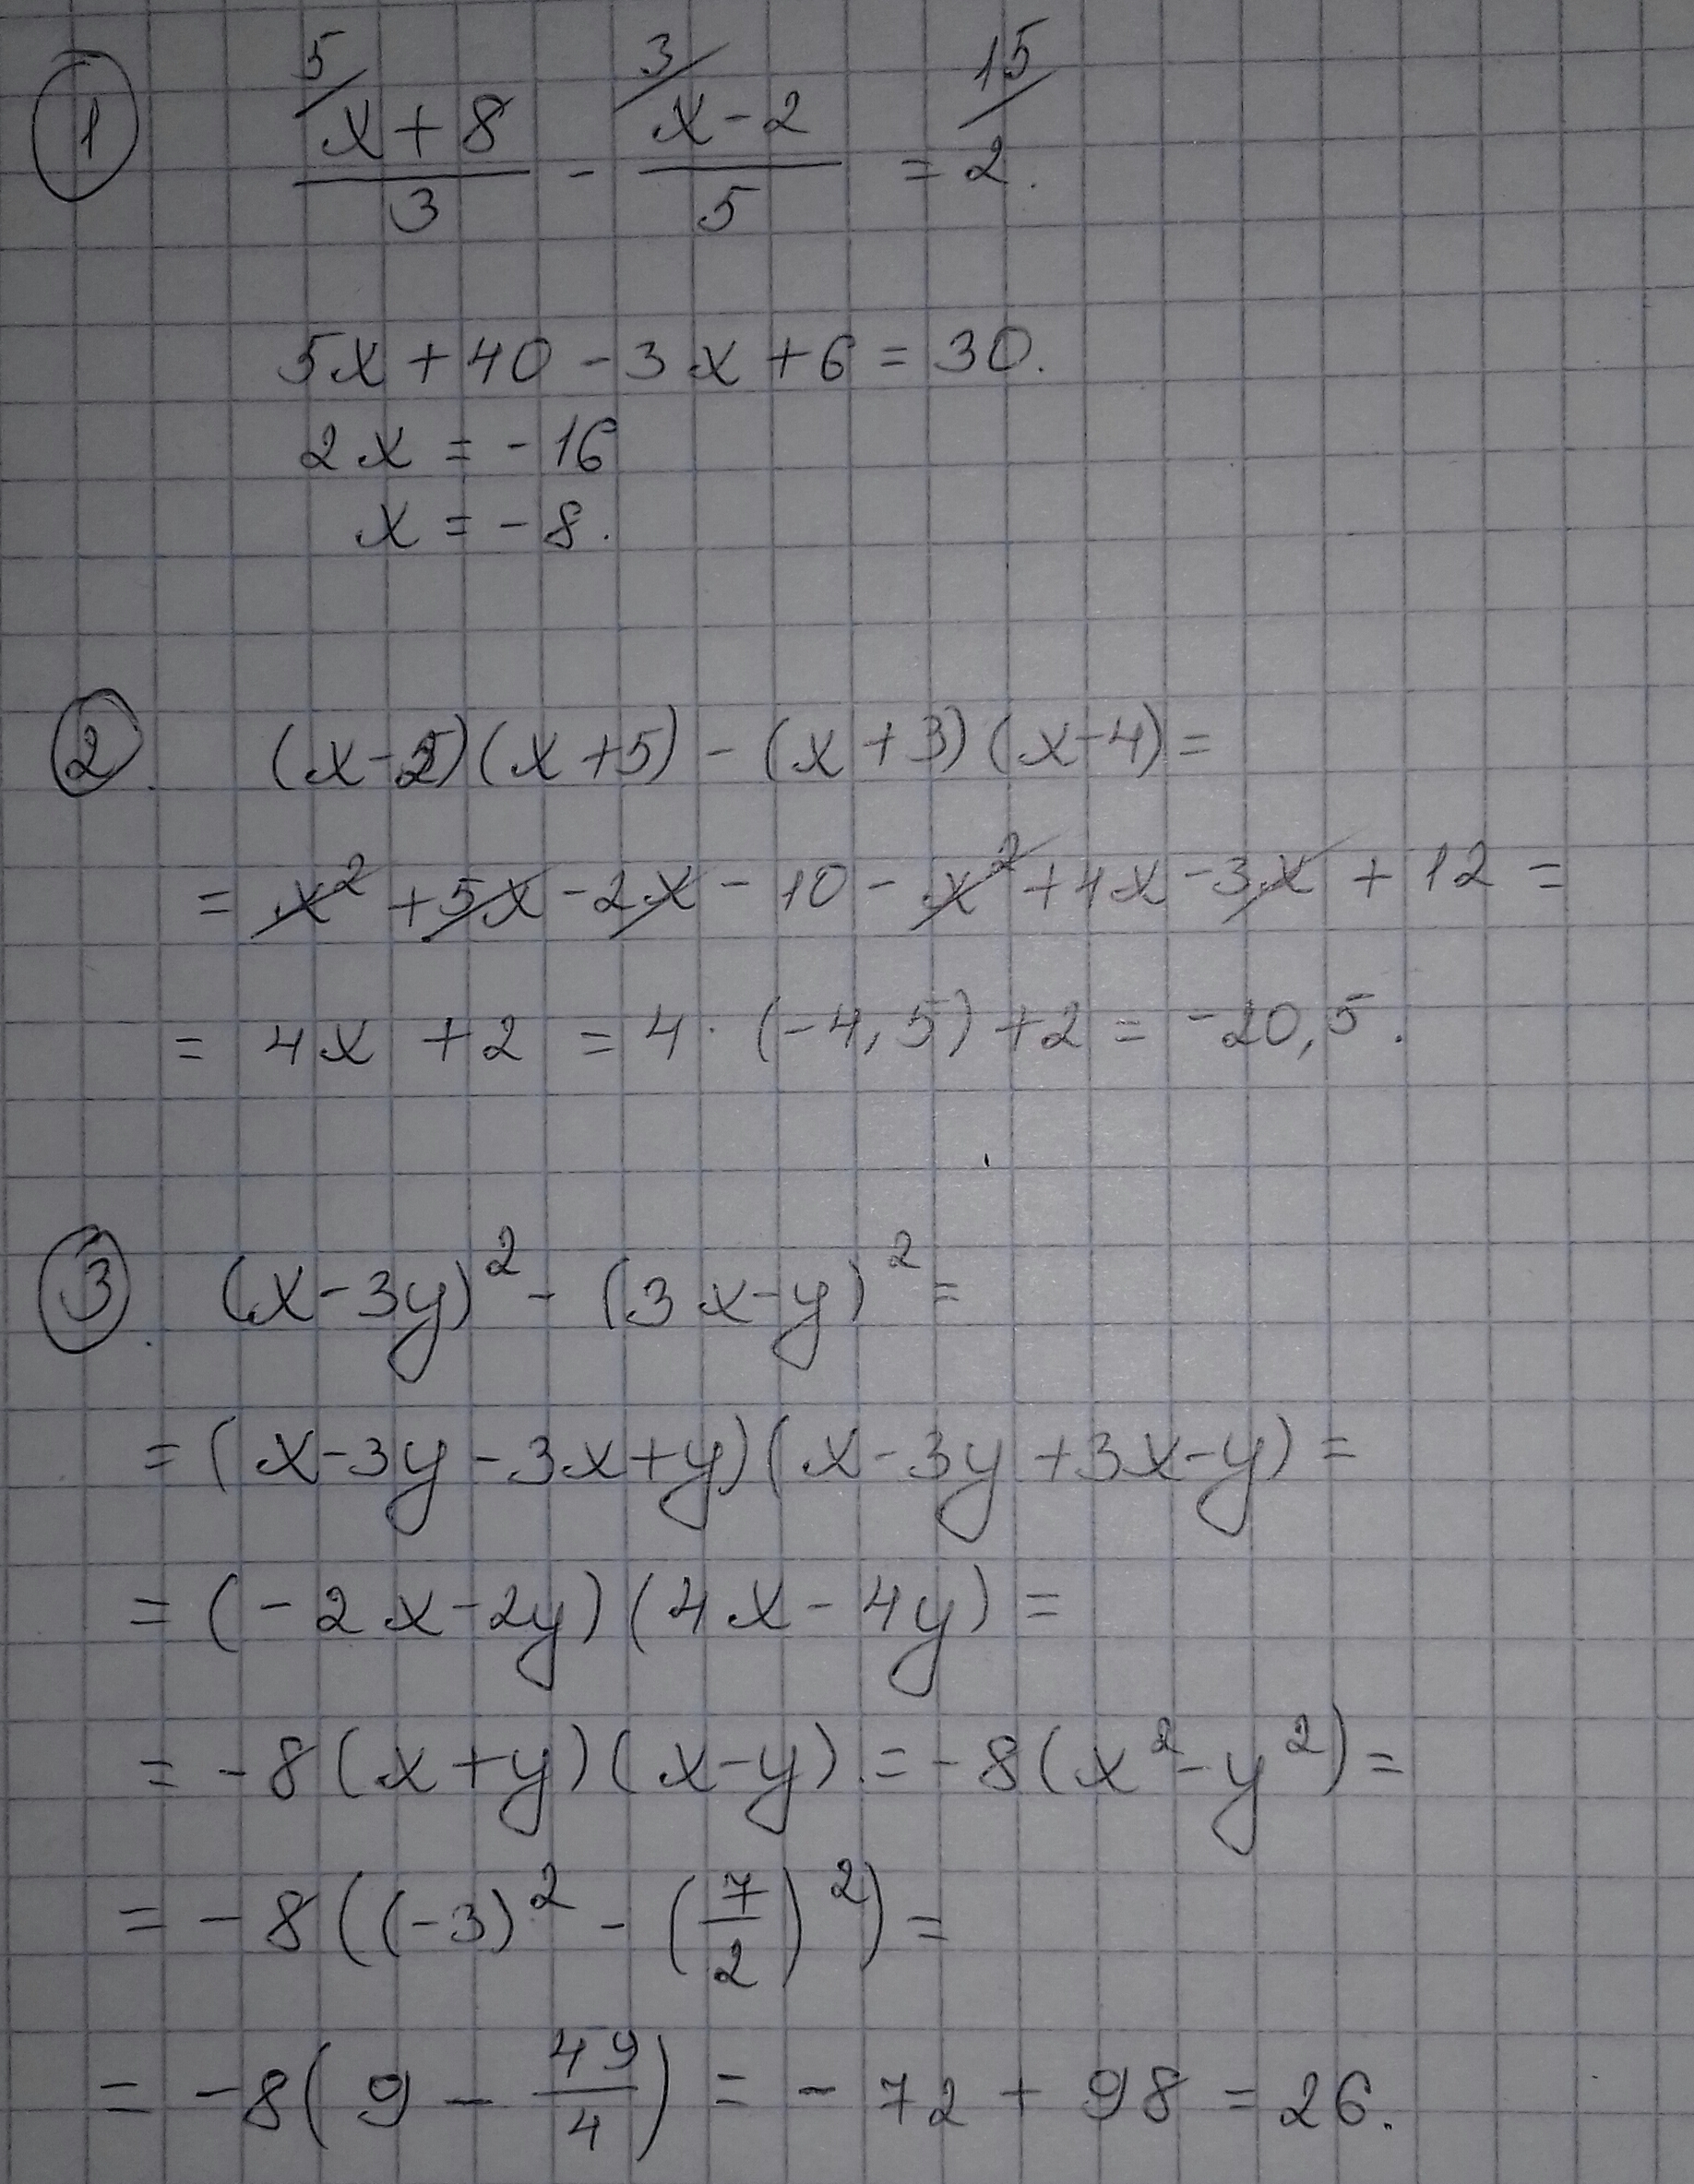 ① 5/ 3/ 15/
(x+8)/3 - (x-2)/5 = 2.
5x + 40 - 3x + 6 = 30.
2x = -16
x = -8.
②. (x-2)(x+5) - (x+3)(x-4) =
= x² + 5x - 2x - 10 - x² + 4x - 3x + 12 =
= 4x + 2 = 4 · (-4,5) + 2 = -20,5.
③. (x-3y)² - (3x-y)² =
= (x-3y-3x+y)(x-3y+3x-y) =
= (-2x-2y)(4x-4y) =
= -8(x+y)(x-y) = -8(x²-y²) =
= -8((-3)² - (7/2)²) =
= -8(9 - 49/4) = -72 + 98 = 26.